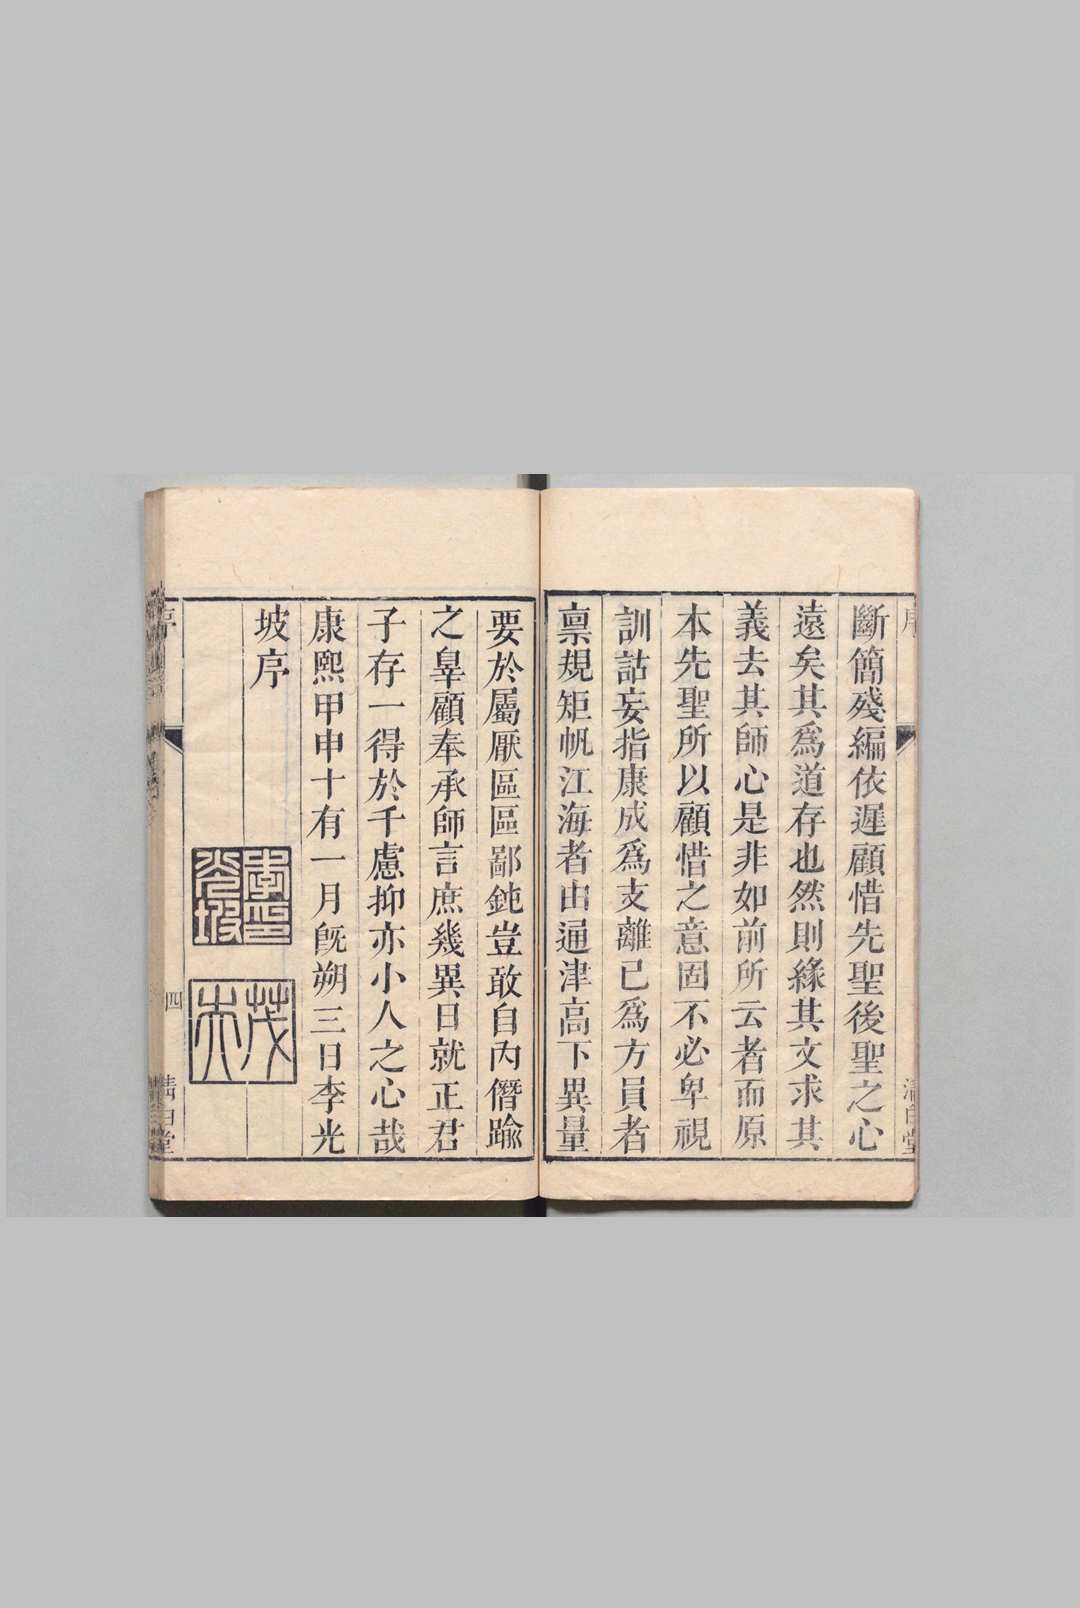 序
清白堂
斷簡殘編依遲顧惜先聖後聖之心
遠矣其爲道存也然則緣其文求其
義去其師心是非如前所云者而原
本先聖所以顧惜之意固不必卑視
訓詁妄指康成爲支離已爲方員者
禀規矩帆江海者由通津高下異量
要於屬厭區區鄙鈍豈敢自內僭踰
之辠顧奉承師言庶幾異日就正君
子存一得於千慮抑亦小人之心哉
康熙甲申十有一月旣朔三日李光
坡序
李印光坡
茂夫
序
四
清白堂